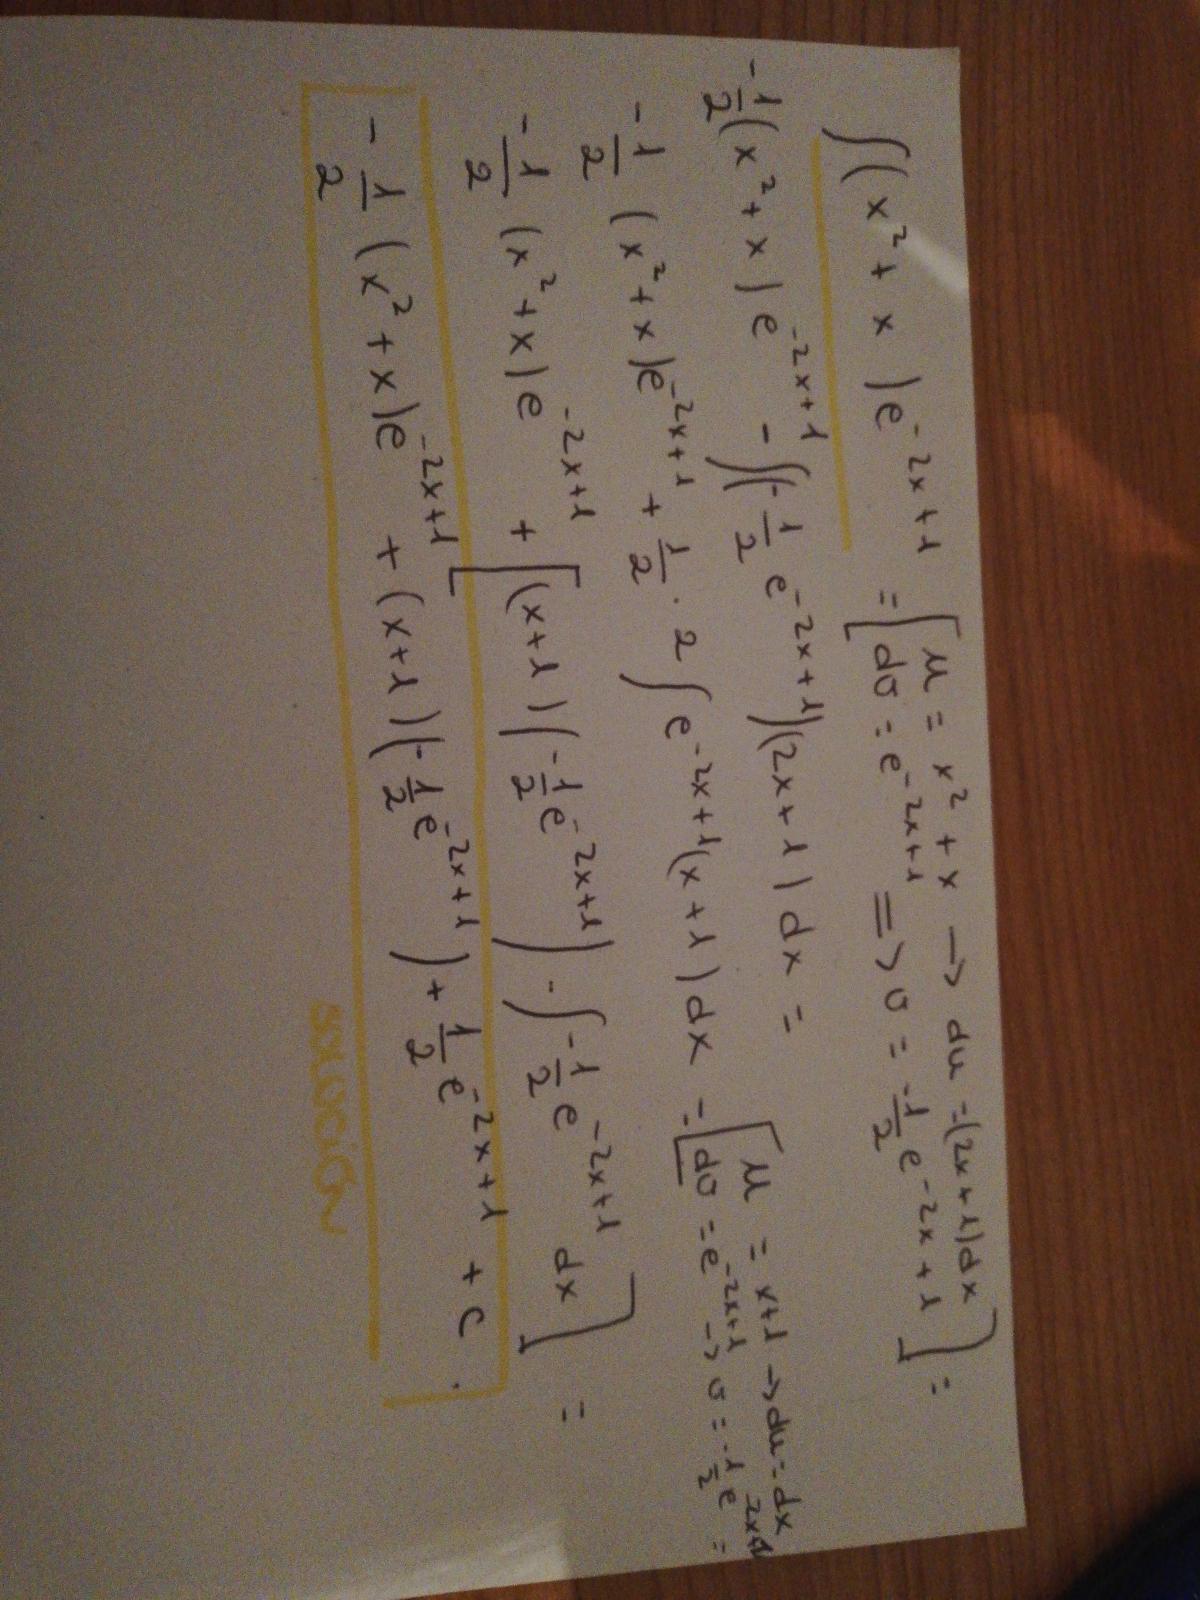 ∫(x² + x)e^{-2x+1} = [u = x² + x → du = (2x+1)dx
dv = e^{-2x+1} => v = -1/2 e^{-2x+1}] =
-1/2(x² + x)e^{-2x+1} - ∫(-1/2 e^{-2x+1})(2x+1)dx =
-1/2 (x² + x)e^{-2x+1} + 1/2 · 2 ∫e^{-2x+1}(x+1)dx = [u = x+1 → du = dx
dv = e^{-2x+1} → v = -1/2 e^{2x+1} =
-1/2 (x² + x)e^{-2x+1} + [(x+1)(-1/2 e^{-2x+1}) - ∫-1/2 e^{-2x+1} dx] =
-1/2 (x² + x)e^{-2x+1} + (x+1)(-1/2 e^{-2x+1}) + 1/2 e^{-2x+1} + C